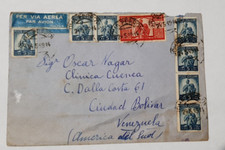 PER VIA AEREA
PAR AVION
Sig. Oscar Nagar
Clinica Cuenca
C. Dalla Costa 61
Ciudad Bolívar
Venezuela
(America del Sud)